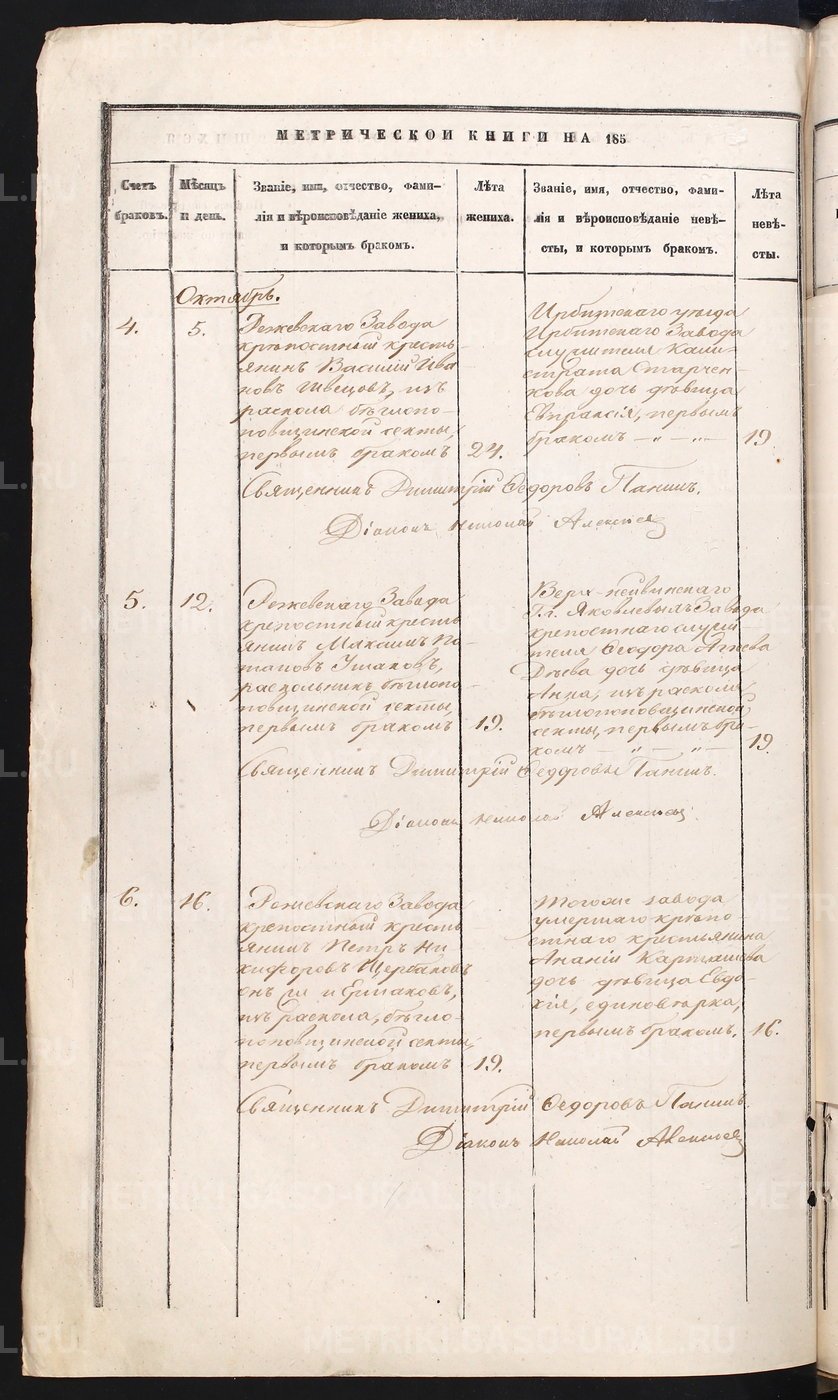 МЕТРИЧЕСКОЙ КНИГИ НА 185
Счетъ браковъ.
Мѣсяцъ и день.
Званіе, имя, отчество, фами-
лія и вѣроисповѣданіе жениха,
и которымъ бракомъ.
Лѣта жениха.
Званіе, имя, отчество, фами-
лія и вѣроисповѣданіе невѣ-
сты, и которымъ бракомъ.
Лѣта невѣ-
сты.
Октябрь.
4.
5.
Режевскаго Завода
крѣпостный кресть-
янинъ Василій Ива
новъ Швецовъ, изъ
раскола бѣглопо-
повщинской секты,
первымъ бракомъ
24.
Ирбитскаго уѣзда
Ирбитскаго Завода
служителя Кали-
страта Старчен-
кова дочь дѣвица
Евпраксія, первымъ
бракомъ — „ — „ —
19
Священникъ Димитрій Ѳедоровъ Панинъ.
Діаконъ Николай Алексѣев
5.
12.
Режевскаго Завода
крепостный кресть
янинъ Максимъ По-
таповъ Ушаковъ,
раскольникъ бѣглопо-
повщинской секты,
первымъ бракомъ
19.
Верх-нейвинскаго
Гг. Яковлевыхъ Завода
крепостнаго служи-
теля Ѳеодора
дочь дѣвица
Анна, изъ раскола
бѣглопоповщинской
секты, первымъ бра-
комъ — „ — „ —
19.
Священникъ Димитрій Ѳедоровъ Панинъ.
Діаконъ Николай Алексѣев
6.
16.
Режевскаго Завода
крепостный кресть
янинъ Петръ Ни
кифоровъ Щербаковъ
онъ же и Ермаковъ,
изъ раскола, бѣгло-
поповщинской секты,
первымъ бракомъ
19.
Тогоже завода
умершаго крѣпо-
стнаго крестьянина
Ананіи Карташева
дочь дѣвица Евдо-
кія, единовѣрка,
первымъ бракомъ.
16.
Священникъ Димитрій Ѳедоровъ Панинъ.
Діаконъ Николай Алексѣев
METRIKI.GASO-URAL.RU